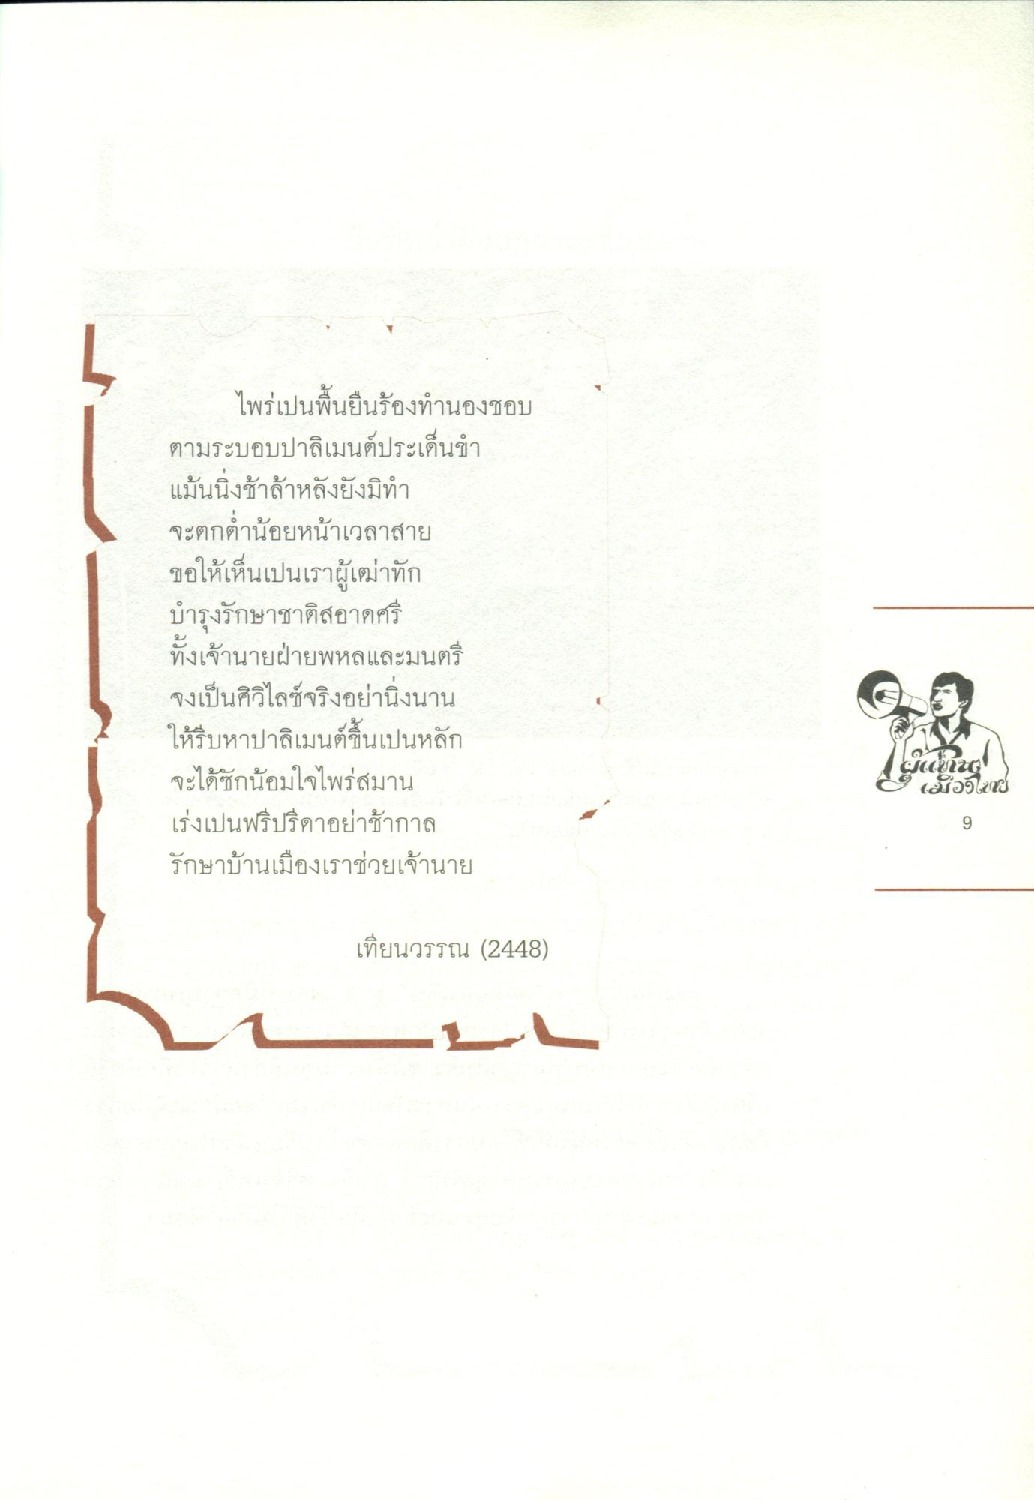 ไพร่เปนพื้นยืนร้องทำนองชอบ
ตามระบอบปาลิเมนต์ประเด็นขำ
แม้นนิ่งช้าล้าหลังยังมิทำ
จะตกต่ำน้อยหน้าเวลาสาย
ขอให้เห็นเปนเราผู้เฒ่าทัก
บำรุงรักษาชาติสอาดศรี
ทั้งเจ้านายฝ่ายพหลและมนตรี
จงเป็นศิวิไลซ์จริงอย่านิ่งนาน
ให้รีบหาปาลิเมนต์ขึ้นเปนหลัก
จะได้ชักน้อมใจไพร่สมาน
เร่งเปนฟรีปรีดาอย่าช้ากาล
รักษาบ้านเมืองเราช่วยเจ้านาย
เทียนวรรณ (2448)
ผู้แทน
เมืองไทย
9